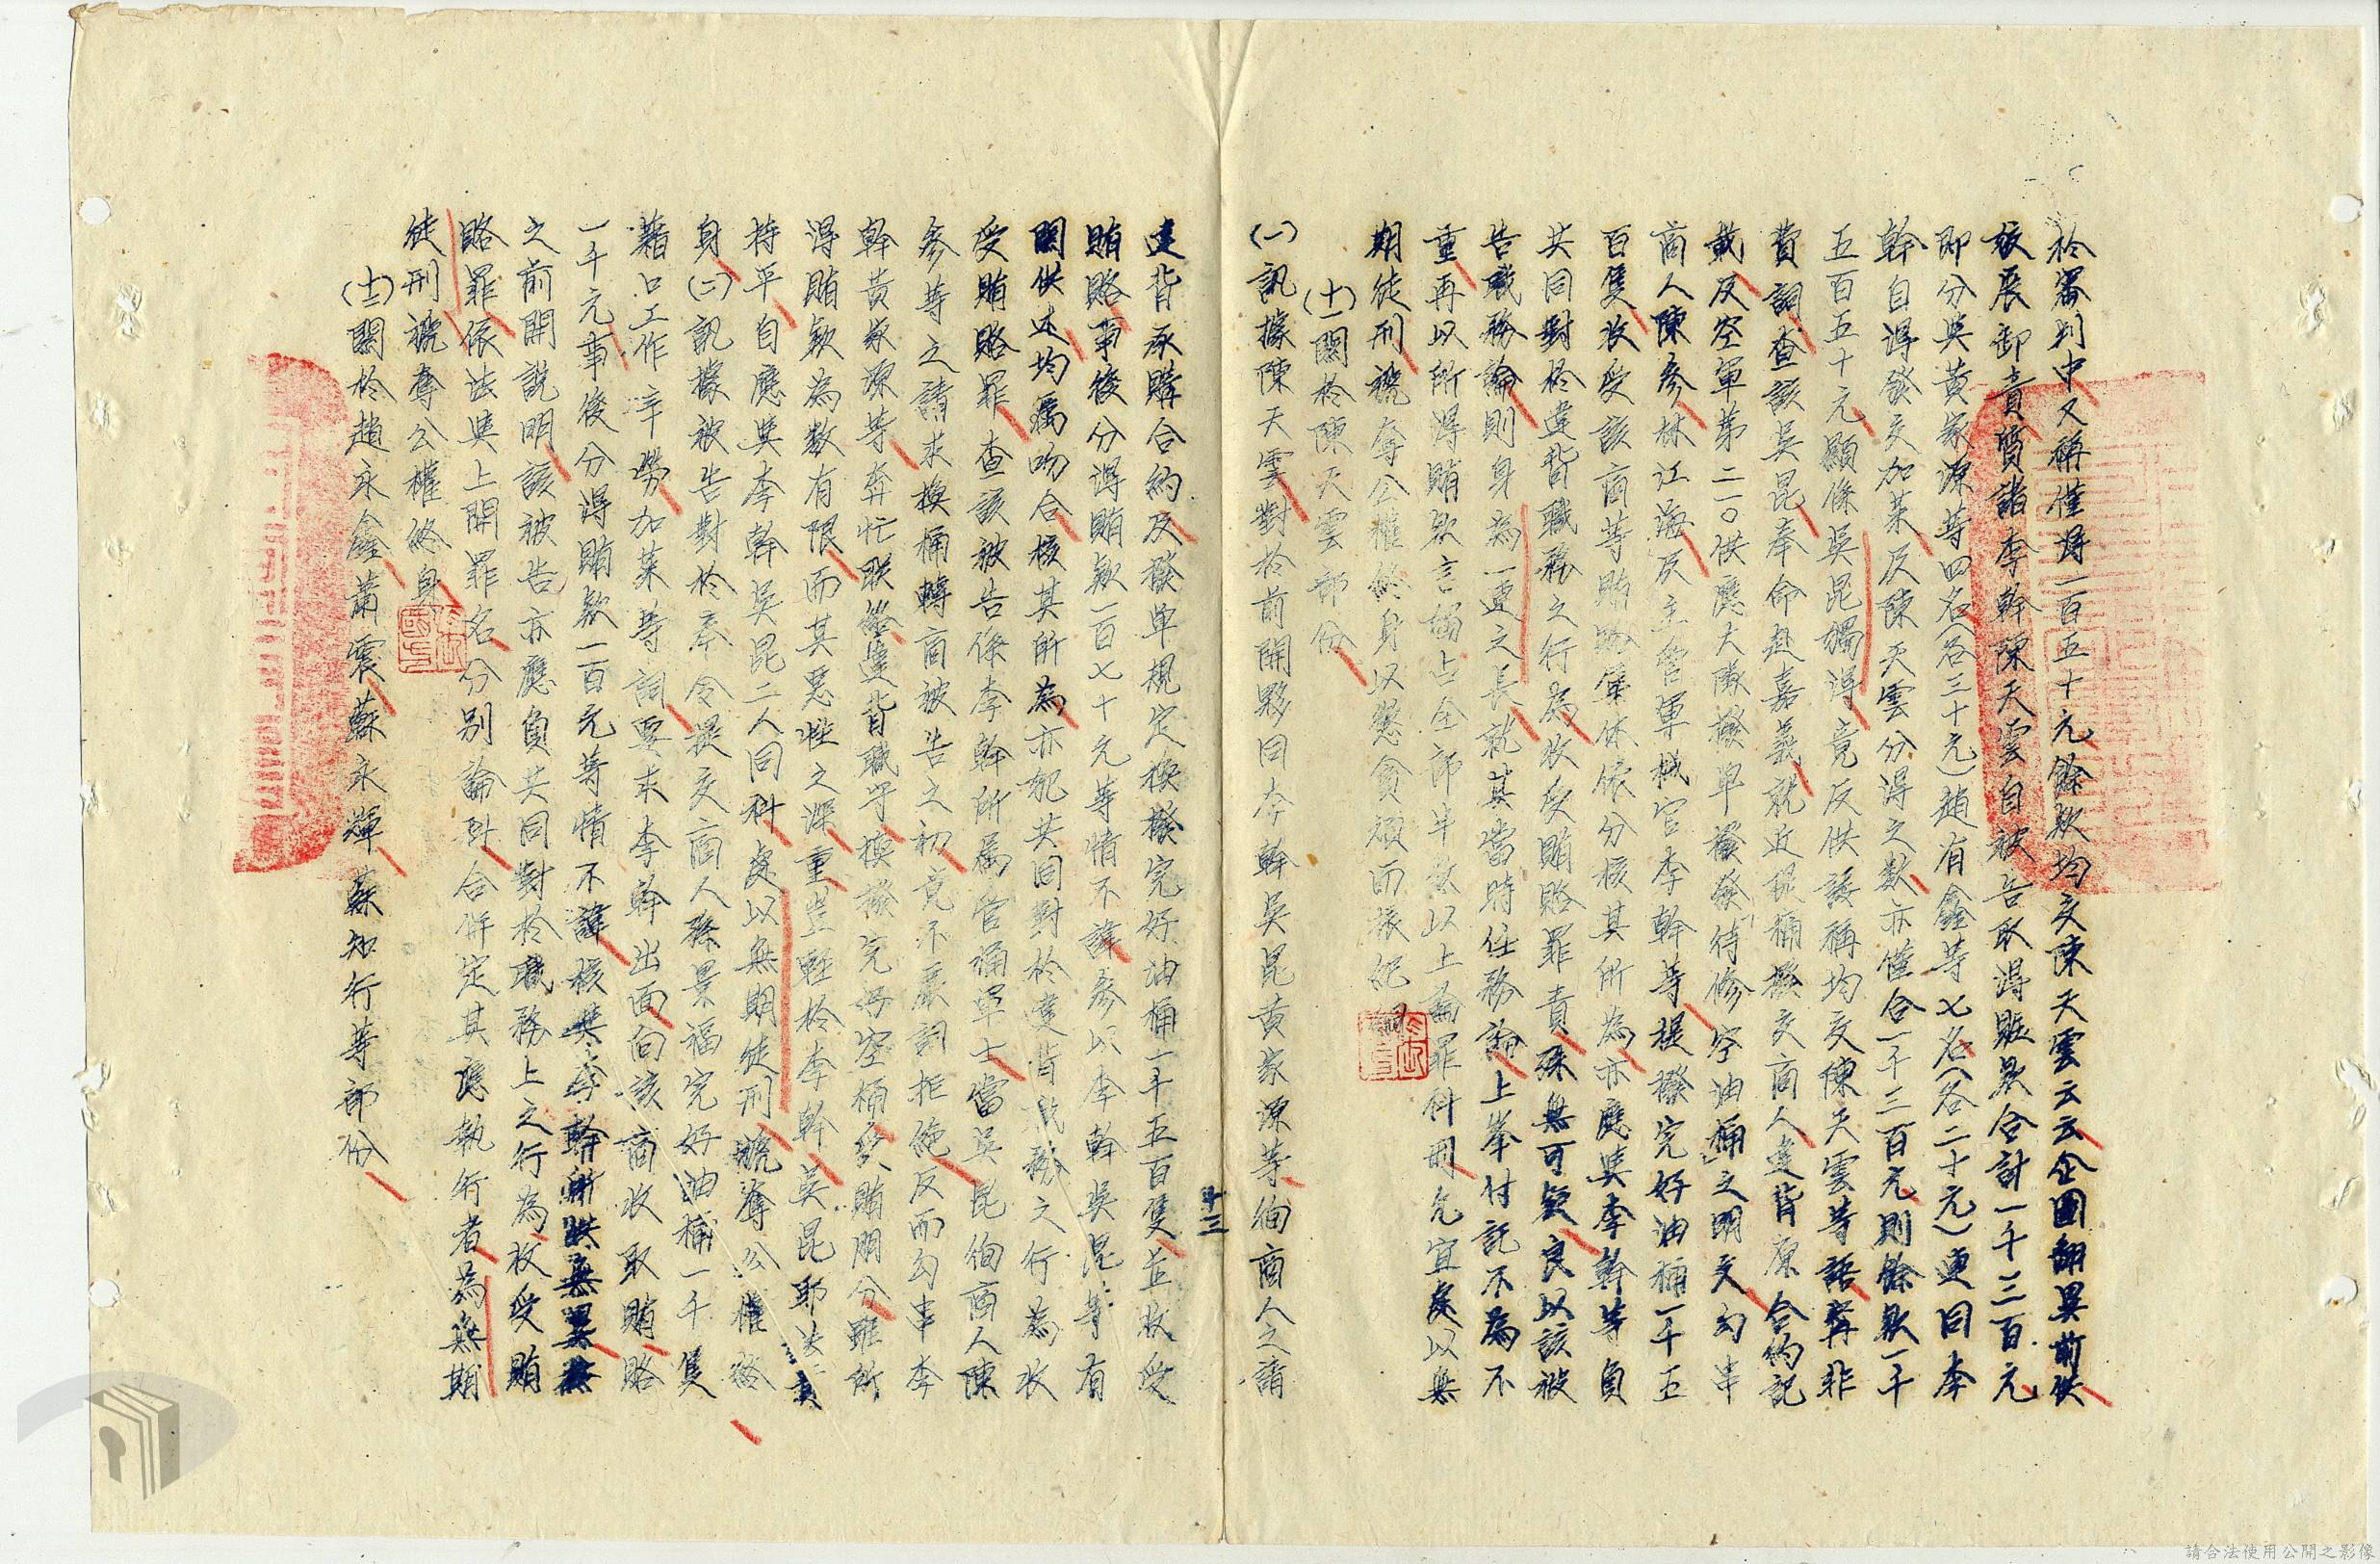 於審判中又稱僅得一百五十元餘款均交陳天雲云云企圖翻異前供
張展卸責質諸李幹陳天雲自被告取得賍款合計一千三百元
即分與黃家源等四名(各三十元)趙有鑫等七名(各二十元)連同李
幹自得發交加菜及陳天雲分得之數亦僅合一千三百元則餘款一千
五百五十元顯係吳昆獨得竟反供諉稱均交陳天雲等語奪非
費詞查該吳昆奉命赴嘉義就近提桶撥交商人違背原合約記
載及空軍第二一〇供應大隊撥單撥發「待修空油桶」之明文勾串
商人陳參林江海及主管軍械官李幹等提撥完好油桶一千五
百隻收受該商等賄賂集体依分核其所為亦應與李幹等負
共同對於違背職務之行為收受賄賂罪責殊無可疑良以該被
告職務論則身為一連之長就其當時任務論上峯付託不為不
重再以所得賄款言獨占全部半數以上論罪科刑允宜處以無
期徒刑褫奪公權終身以懲貪頑而振紀綱
(十一)關於陳天雲部份
(一)訊據陳天雲對於前開夥同李幹吳昆黃家源等徇商人之請
十三
違背承購合約及撥單規定換撥完好油桶一千五百隻並收受
賄賂事後分得賄款一百七十元等情不諱參以李幹吳昆等有
關供述均屬吻合核其所為亦犯共同對於違背職務之行為收
受賄賂罪查該被告係李幹所屬管油軍士當吳昆徇商人陳
參等之請求換桶轉商被告之初竟不嚴詞拒絕反而勾串李
幹黃家源等奔忙聯絡違背職守換撥完好空桶受賄朋分雖所
得賄款為數有限而其惡性之深重豈輕於李幹吳昆耶法貴
持平自應與李幹吳昆二人同科處以無期徒刑褫奪公權終
身(二)訊據被告對於奉令提交商人孫景福完好油桶一千隻
藉口工作辛勞加菜等詞要求李幹出面向該商收取賄賂
一千元事後分得賄款一百元等情不諱核與李幹所供無異該
之前開說明該被告亦應負共同對於職務上之行為收受賄
賂罪依法與上開罪名分別論科合併定其應執行者為無期
徒刑褫奪公權終身
(十二)關於趙永鑫蕭震蘇永輝蘇知行等部份
請合法使用公開之影像